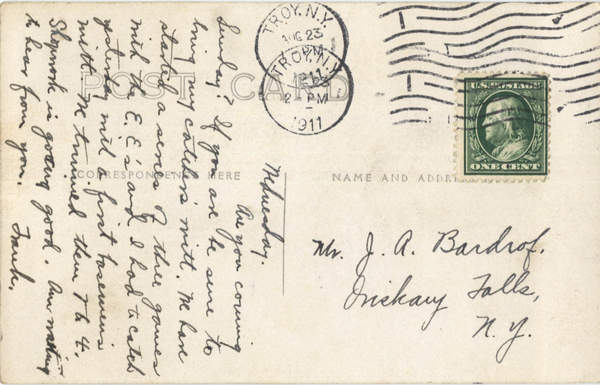 POST CARD
CORRESPONDENCE HERE
Wednesday.
Are you coming
Sunday? If you are be sure to
bring my catcher's mitt. We have
started a series of three games
with the E.E's and I had to catch
yesterday with a first basemens
mitt. We trimmed them 7 to 4.
Shopwork is going good. Am waiting
to hear from you. Frank.
TROY, N.Y.
AUG 23
TROY, N.Y.
2 PM
1911
U.S. POSTAGE
ONE CENT
NAME AND ADDRE
Mr. J. A. Bardrof,
Oriskany Falls,
N.Y.